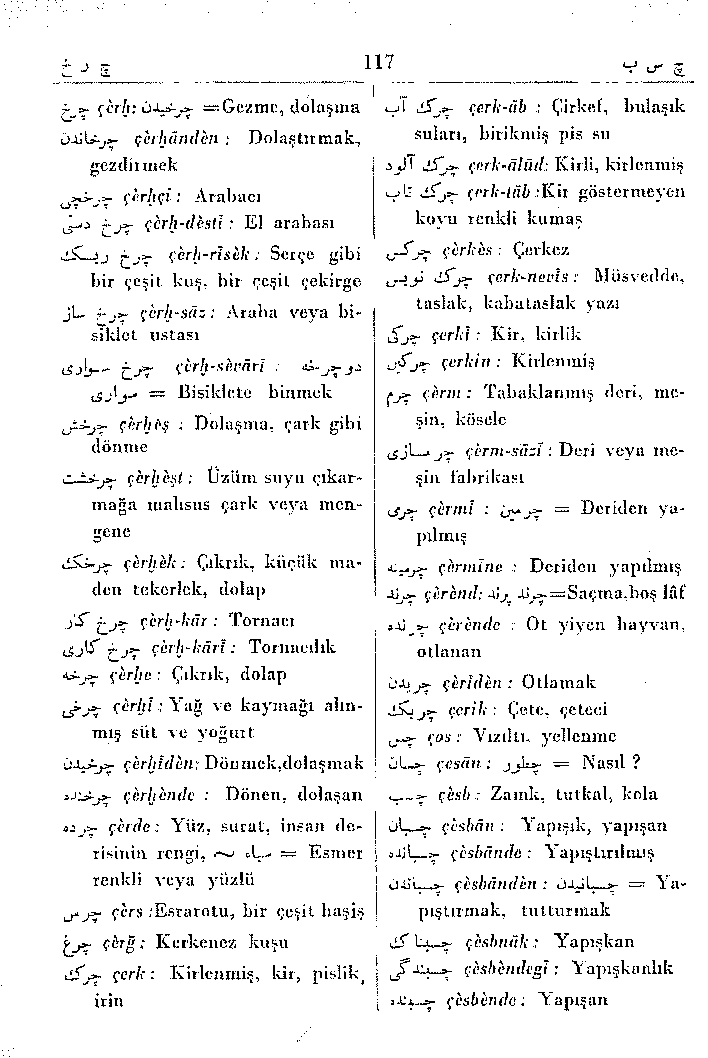 چ ر خ
117
چ س ب
چرخ çèrḫ: چرخیدن =Gezme, dolaşma
چرخاندن çèrḫândèn : Dolaştırmak,
gezdirmek
چرخچی çèrḫçî : Arabacı
چرخ دستی çèrḫ-dèstî : El arabası
چرخ ریسك çèrḫ-rîsèk : Serçe gibi
bir çeşit kuş, bir çeşit çekirge
چرخ ساز çèrḫ-sâz : Araba veya bi-
siklet ustası
چرخ سواری çèrḫ-sèvârî : دوچرخه
سواری = Bisiklete binmek
چرخش çèrḫèş : Dolaşma, çark gibi
dönme
چرخشت çèrḫèşt : Üzüm suyu çıkar-
mağa mahsus çark veya men-
gene
چرخك çèrḫèk : Çıkrık, küçük ma-
den tekerlek, dolap
چرخ کار çèrḫ-kâr : Tornacı
چرخ کاری çèrḫ-kârî : Tornacılık
چرخه çèrḫe : Çıkrık, dolap
چرخی çèrḫî : Yağ ve kaymağı alın-
mış süt ve yoğurt
چرخیدن çèrḫîdèn: Dönmek,dolaşmak
چرخنده çèrḫènde : Dönen, dolaşan
چرده çèrde : Yüz, surat, insan de-
risinin rengi, سیاه ~ = Esmer
renkli veya yüzlü
چرس çèrs :Esrarotu, bir çeşit haşiş
چرغ çèrg : Kerkenez kuşu
چرك çerk : Kirlenmiş, kir, pislik,
irin
چرك آب çerk-âb : Çirkef, bulaşık
suları, birikmiş pis su
چرك آلود çerk-âlûd: Kirli, kirlenmiş
چرك تاب çerk-tâb :Kir göstermeyen
koyu renkli kumaş
چرکس çèrkès : Çerkez
چرك نویس çerk-nevîs : Müsvedde,
taslak, kabataslak yazı
چرکی çerkî : Kir, kirlik
چرکین çerkin : Kirlenmiş
چرم çèrm : Tabaklanmış deri, me-
şin, kösele
چرم سازی çèrm-sâzî : Deri veya me-
şin fabrikası
چرمی çèrmî : چرمین = Deriden ya-
pılmış
چرمینه çèrmîne : Deriden yapılmış
چرند çèrènd: چرند پرند=Saçma,boş lâf
چرنده çèrènde : Ot yiyen hayvan,
otlanan
چریدن çèrîdèn : Otlamak
چریك çerik : Çete, çeteci
چس ços : Vızıltı, yellenme
چسان çesân : چطور = Nasıl ?
چسب çèsb : Zamk, tutkal, kola
چسبان çèsbân : Yapışık, yapışan
چسبانده çèsbânde : Yapıştırılmış
چسباندن çèsbândèn : چسبانیدن = Ya-
pıştırmak, tutturmak
چسبناك çèsbnâk : Yapışkan
چسبندگی çèsbèndegî : Yapışkanlık
چسبنده çèsbènde : Yapışan